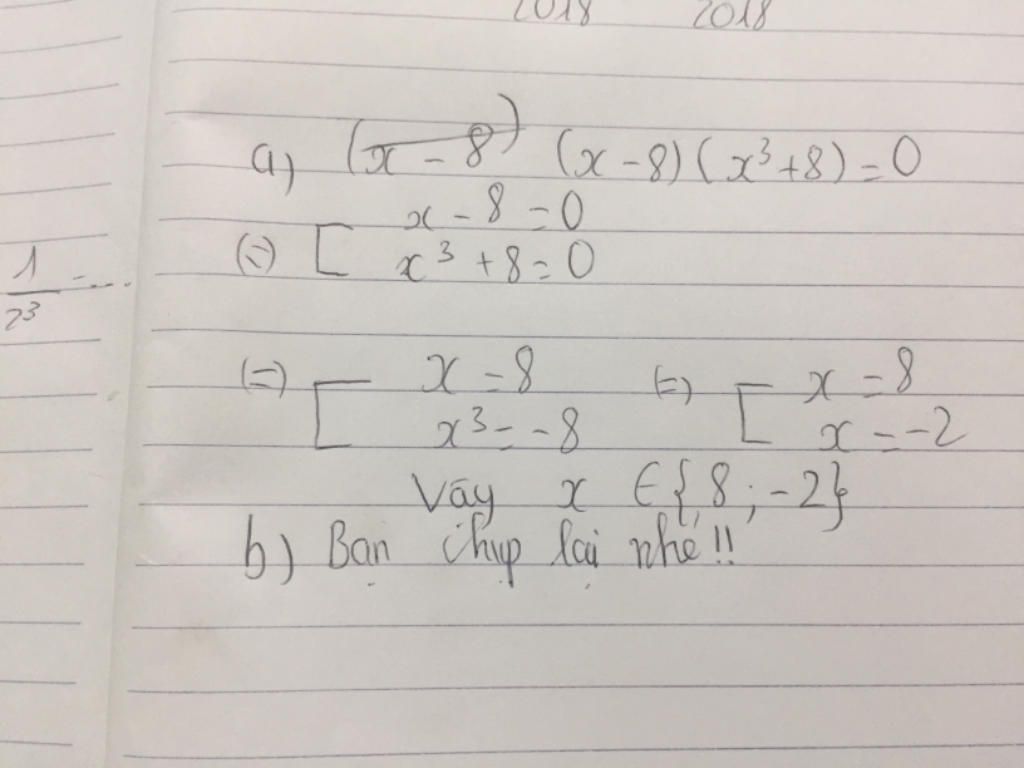 2018 2018
a) (x - 8) (x - 8)(x³ + 8) = 0
x - 8 = 0
(=) [ x³ + 8 = 0
1/2³ = ...
(=) [ x = 8 (=) [ x = 8
x³ = -8 x = -2
Vây x ∈ {8 ; -2}
b) Bạn chụp lại nhé!!